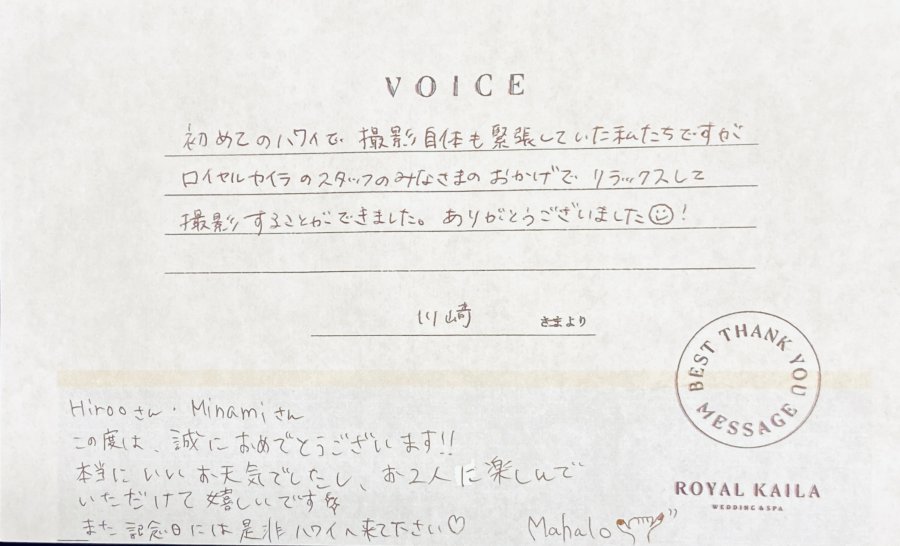 VOICE
初めてのハワイで 撮影自体も緊張していた私たちですが
ロイヤルカイラのスタッフのみなさまのおかげで リラックスして
撮影することができました。ありがとうございました☺!
川崎 さまより
BEST THANK YOU MESSAGE
Hirooさん・Minamiさん
この度は、誠におめでとうございます!!
本当にいいお天気でしたし、お2人に楽しんで
いただけて嬉しいです
また記念日には是非ハワイへ来て下さい♡
Mahalo
ROYAL KAILA
WEDDING & SPA